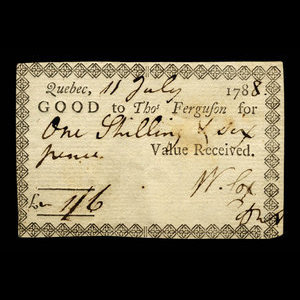 Quebec, 11 July 1788
GOOD to Thoˢ Ferguſon for
One Shilling & Six
pence. Value Received.
W. Cox
1/6